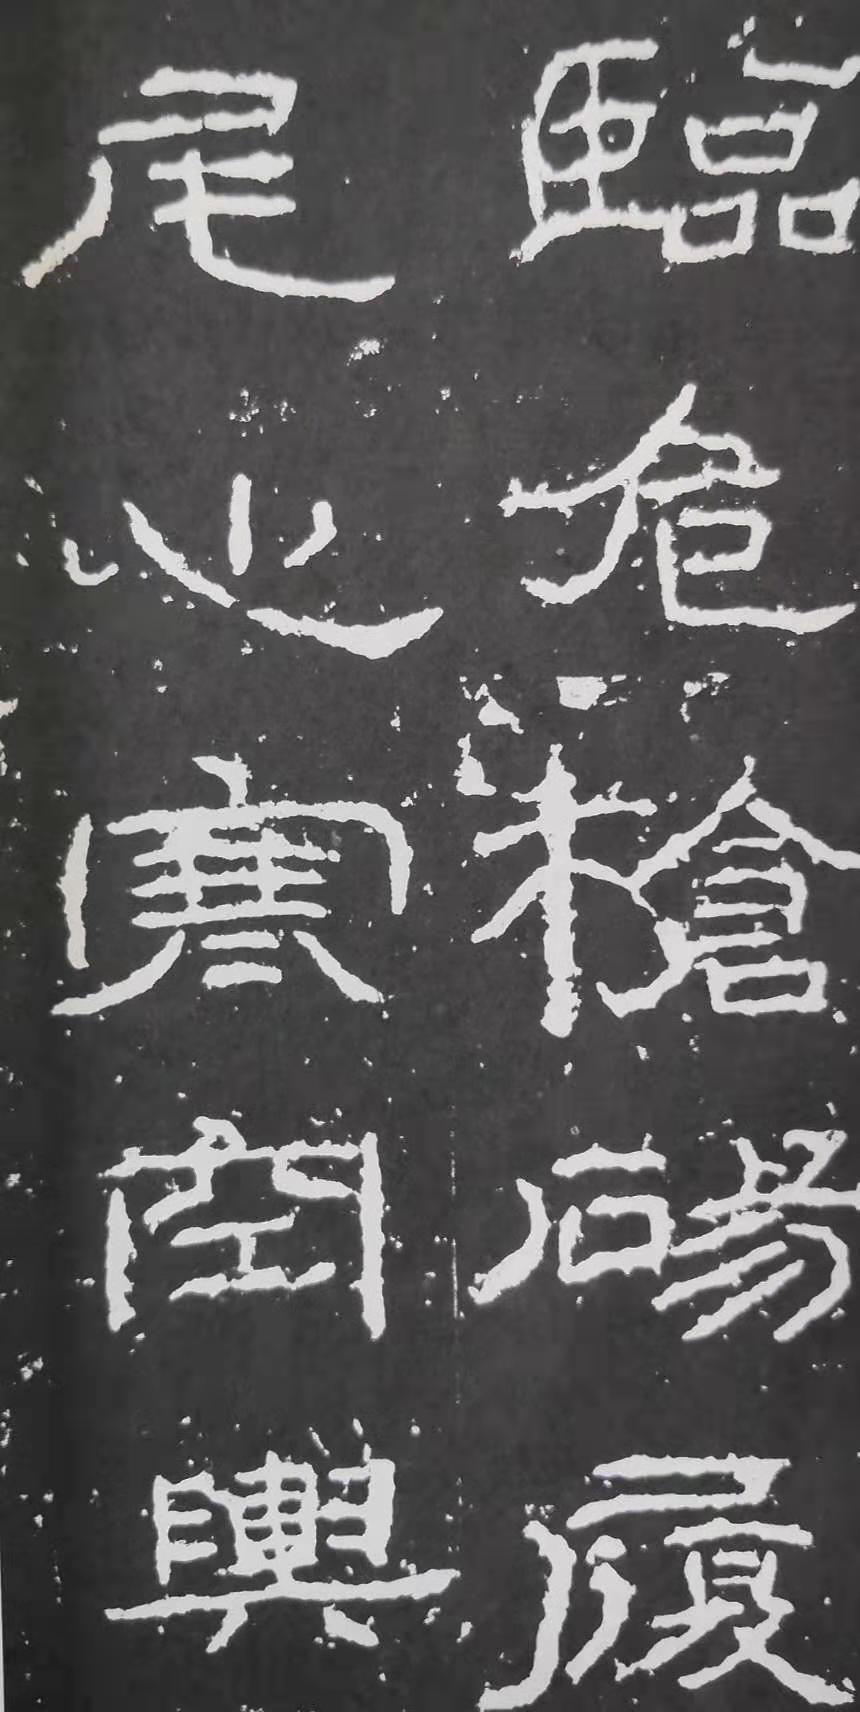 臨危槍碭履
尾心寒空輿